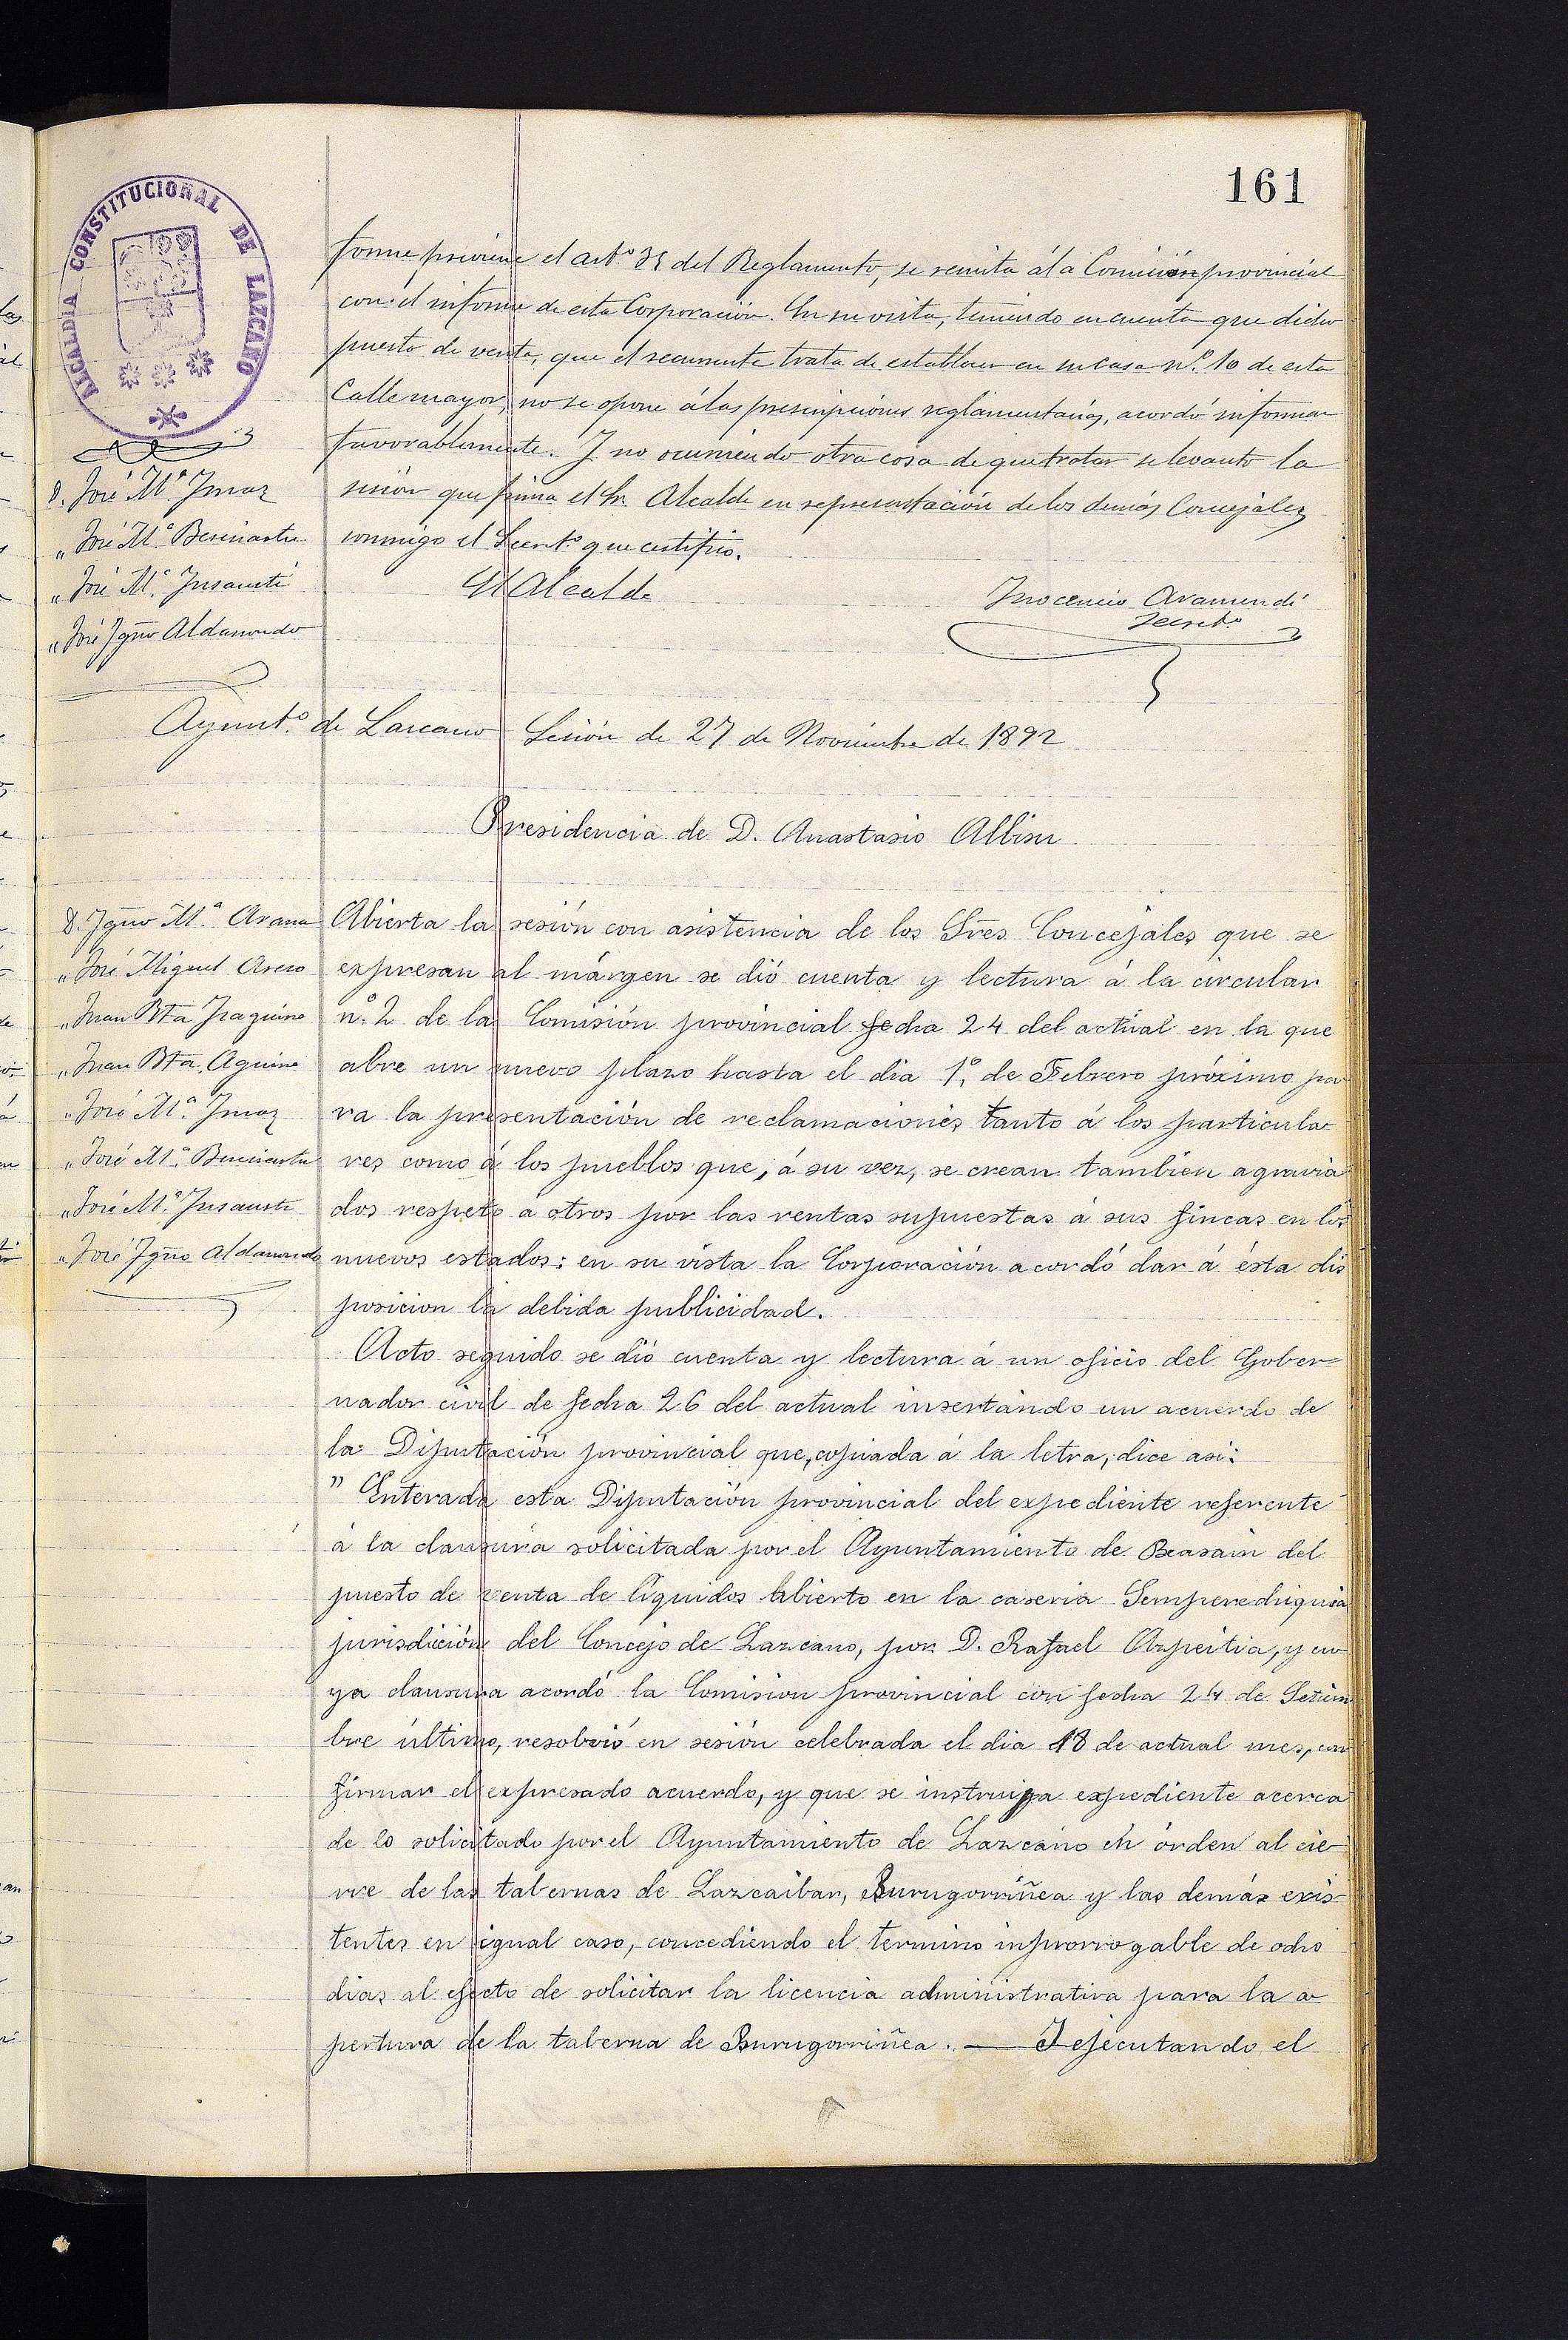 161
ALCALDIA CONSTITUCIONAL DE LAZCANO
forme previene el art.º 35 del Reglamento, se remita á la Comisión provincial
con el informe de esta Corporación. En su vista, teniendo en cuenta que dicho
puesto de venta, que el recurrente trata de establecer en su casa nº. 10 de esta
Calle mayor, no se opone á las prescripciones reglamentarias, acordó informar
favorablemente. Y no ocurriendo otra cosa de que tratar se levanto la
sesión que firma el Sr. Alcalde en representación de los demás Concejales
conmigo el Secret.º que certifico.
D. José M.ª Imaz
" José M.ª Beseiartu
" José M.ª Insausti
" José Ygño Aldanondo
El Alcalde
Inocencio Aramendi
Secret.º
Ayunt.º de Lazcano Sesión de 27 de Noviembre de 1892
Presidencia de D. Anastasio Albisu
D. Ygño M.ª Arana
" José Miguel Areso
" Juan Bta Iraguine
" Juan Bta. Aguirre
" José M.ª Imaz
" José M.ª Beseiartu
" José M.ª Insausti
" José Ygño Aldanondo
Abierta la sesión con asistencia de los Sres Concejales que se
expresan al márgen se dió cuenta y lectura á la circular
nº. 2 de la Comisión provincial fecha 24 del actual en la que
abre un nuevo plazo hasta el dia 1º. de Febrero próximo pa
ra la presentación de reclamaciones tanto á los particula
res como á los pueblos que, á su vez, se crean tambien agravia
dos respeto á otros por las rentas supuestas á sus fincas en los
nuevos estados: en su vista la Corporación acordó dar á ésta dis
posicion la debida publicidad.
Acto seguido se dió cuenta y lectura á un oficio del Gober=
nador civil de fecha 26 del actual insertando un acuerdo de
la Diputación provincial que, copiada á la letra, dice asi:
" Enterada esta Diputación provincial del expediente referente
á la clausura solicitada por el Ayuntamiento de Beasain del
puesto de venta de líquidos abierto en la caseria Semperediquia
jurisdición del Concejo de Lazcano, por D. Rafael Azpeitia, y cu
ya clausura acordó la Comision provincial con fecha 24 de Setiem
bre último, resolvió en sesión celebrada el dia 18 de actual mes, con
firmar el expresado acuerdo, y que se instruya expediente acerca
de lo solicitado por el Ayuntamiento de Lazcano en órden al cie
rre de las tabernas de Lazcaibar, Burugorriñea y las demás exis=
tentes en igual caso, concediendo el termino inprorrogable de ocho
dias al efecto de solicitar la licencia administrativa para la a
pertura de la taberna de Burugorriñea. — Y ejecutando el